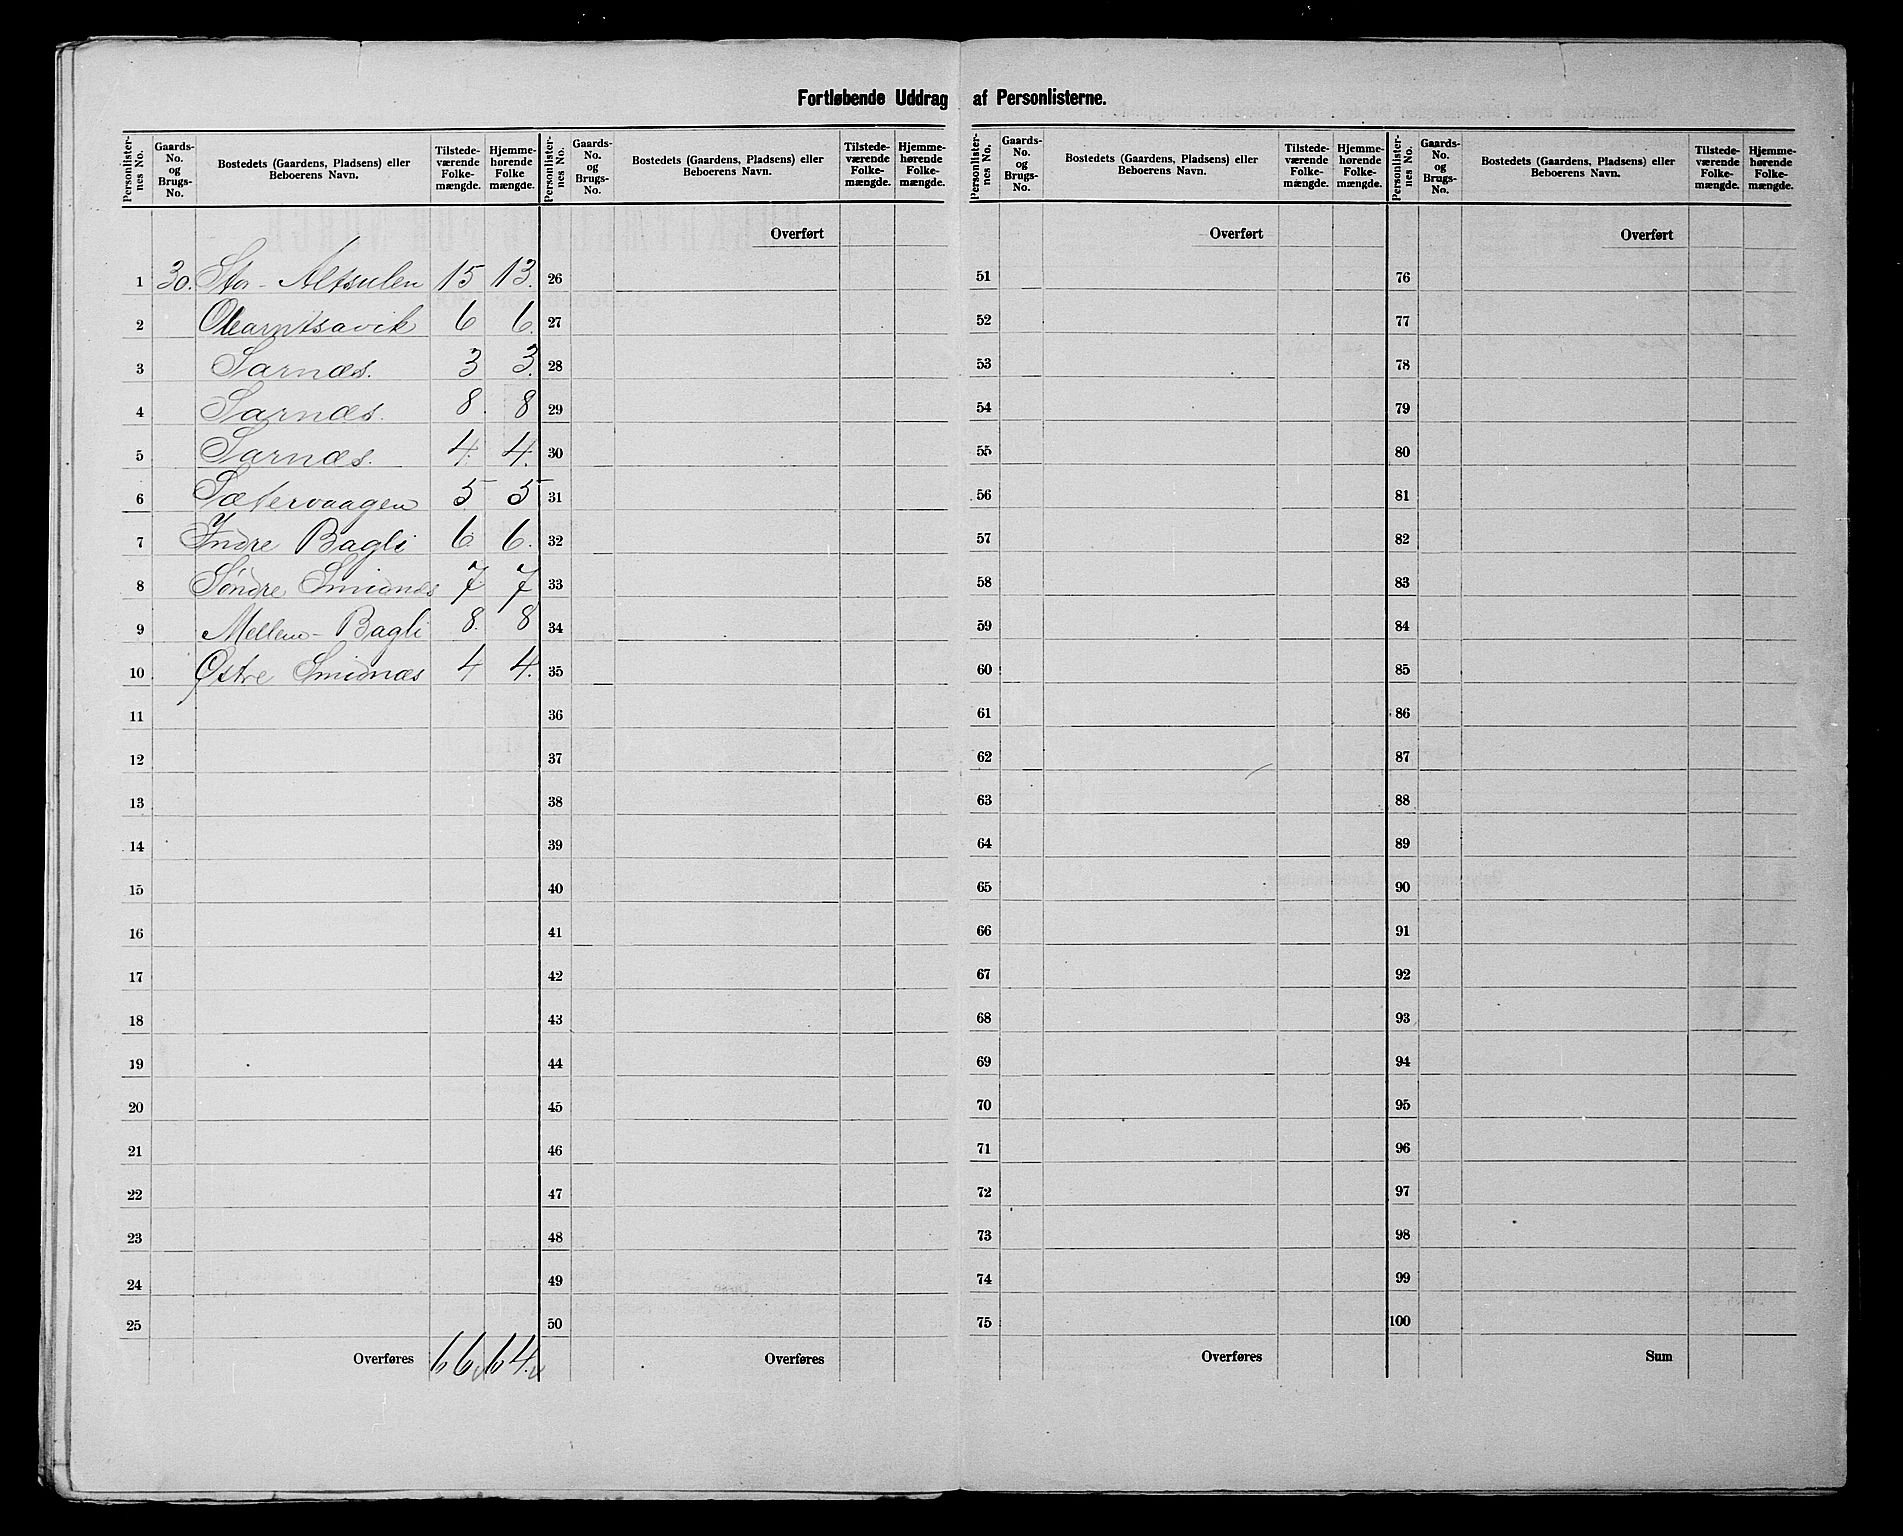 Fortløbende Uddrag af Personlisterne.
Personlister- nes No. | Gaards- No. og Brugs- No. | Bostedets (Gaardens, Pladsens) eller Beboerens Navn. | Tilstede- værende Folke- mængde. | Hjemme- hørende Folke mængde.
1 30. Stor-Altsulen 15 13.
2 6 6.
3 Sarnæs. 3 3.
4 Sarnæs. 8. 8
5 Sarnæs. 4. 4.
6 Sætervaagen 5 5
7 Indre Bagli 6. 6.
8 Søndre Smidnæs 7. 7
9 Mellem-Bagli 8. 8
10 Østre Smidnæs 4 4.
11
12
13
14
15
16
17
18
19
20
21
22
23
24
25
Overføres 66 64.
Personlister- nes No. | Gaards- No. og Brugs- No. | Bostedets (Gaardens, Pladsens) eller Beboerens Navn. | Tilstede- værende Folke- mængde. | Hjemme- hørende Folke- mængde.
Overført
26
27
28
29
30
31
32
33
34
35
36
37
38
39
40
41
42
43
44
45
46
47
48
49
50
Overføres
Personlister- nes No. | Gaards- No. og Brugs- No. | Bostedets (Gaardens, Pladsens) eller Beboerens Navn. | Tilstede- værende Folke- mængde. | Hjemme- hørende Folke- mængde.
Overført
51
52
53
54
55
56
57
58
59
60
61
62
63
64
65
66
67
68
69
70
71
72
73
74
75
Overføres
Personlister- nes No. | Gaards- No. og Brugs- No. | Bostedets (Gaardens, Pladsens) eller Beboerens Navn. | Tilstede- værende Folke- mængde. | Hjemme- hørende Folke- mængde.
Overført
76
77
78
79
80
81
82
83
84
85
86
87
88
89
90
91
92
93
94
95
96
97
98
99
100
Sum